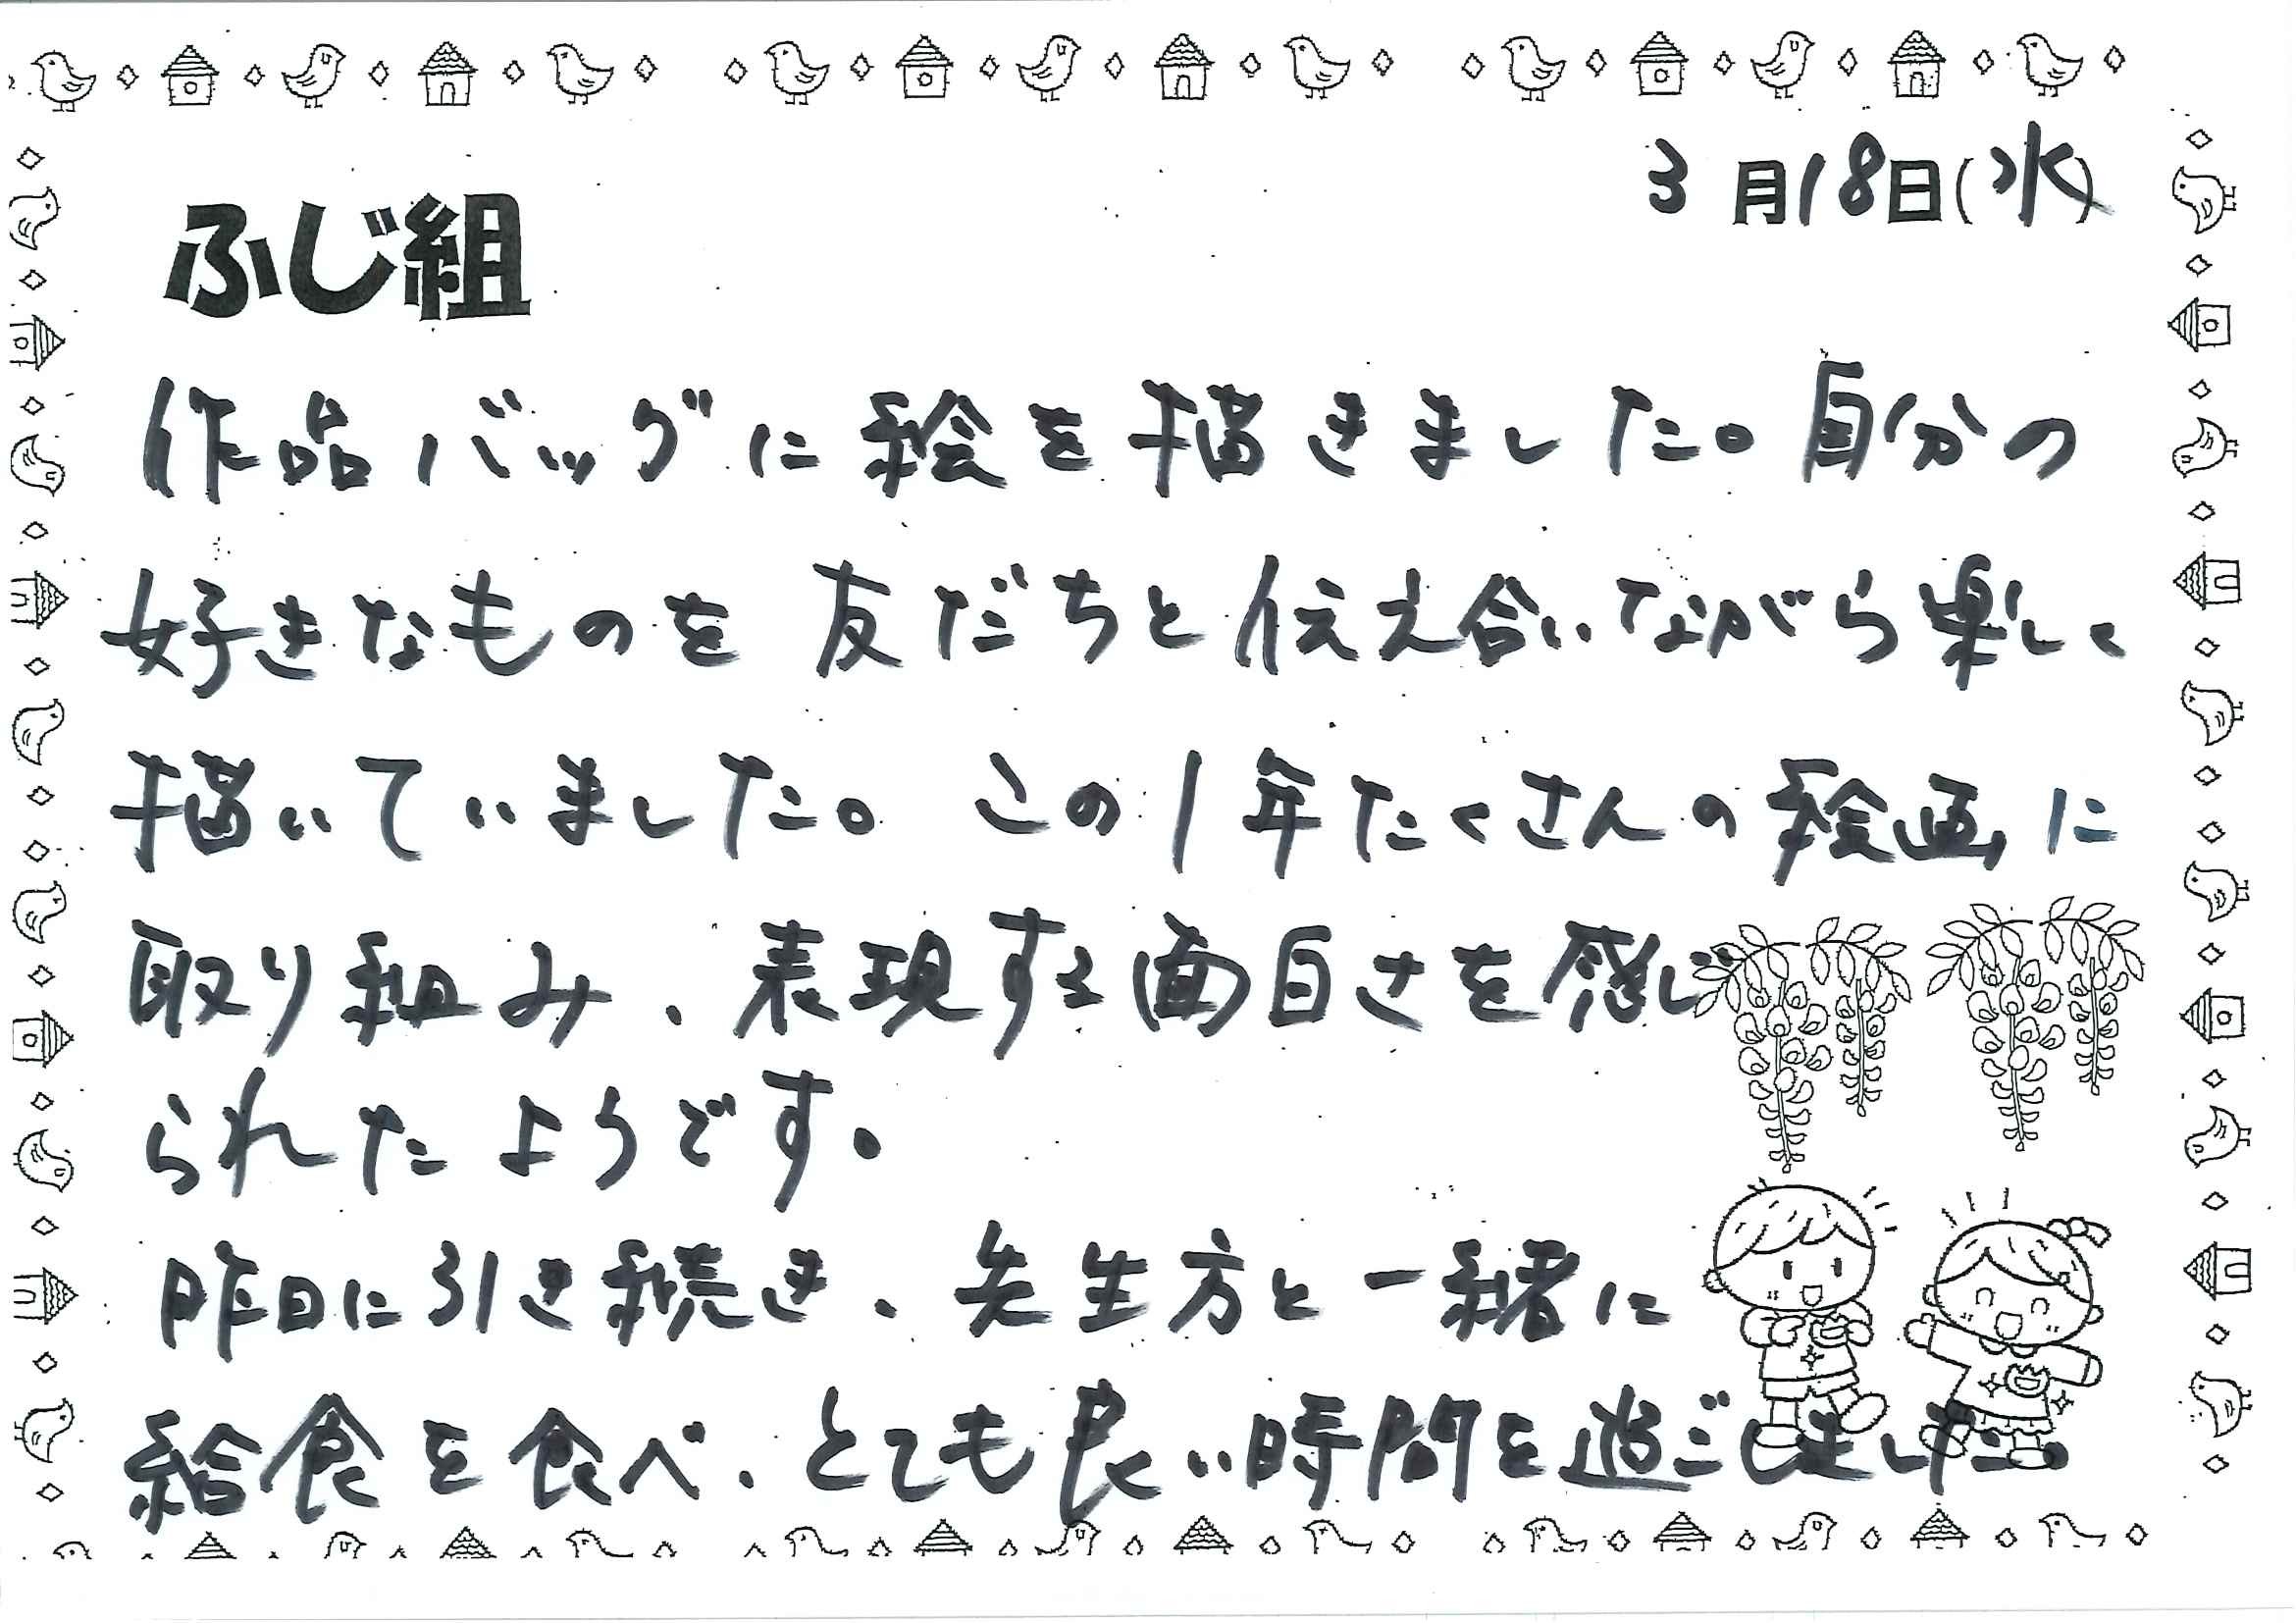 3月18日(水)
ふじ組
作品バッグに絵を描きました。自分の
好きなものを友だちと伝え合いながら楽しく
描いていました。この1年たくさんの絵画に
取り組み、表現する面白さを感じ
られたようです。
昨日に引き続き、先生方と一緒に
給食を食べ、とても良い時間を過ごしました。